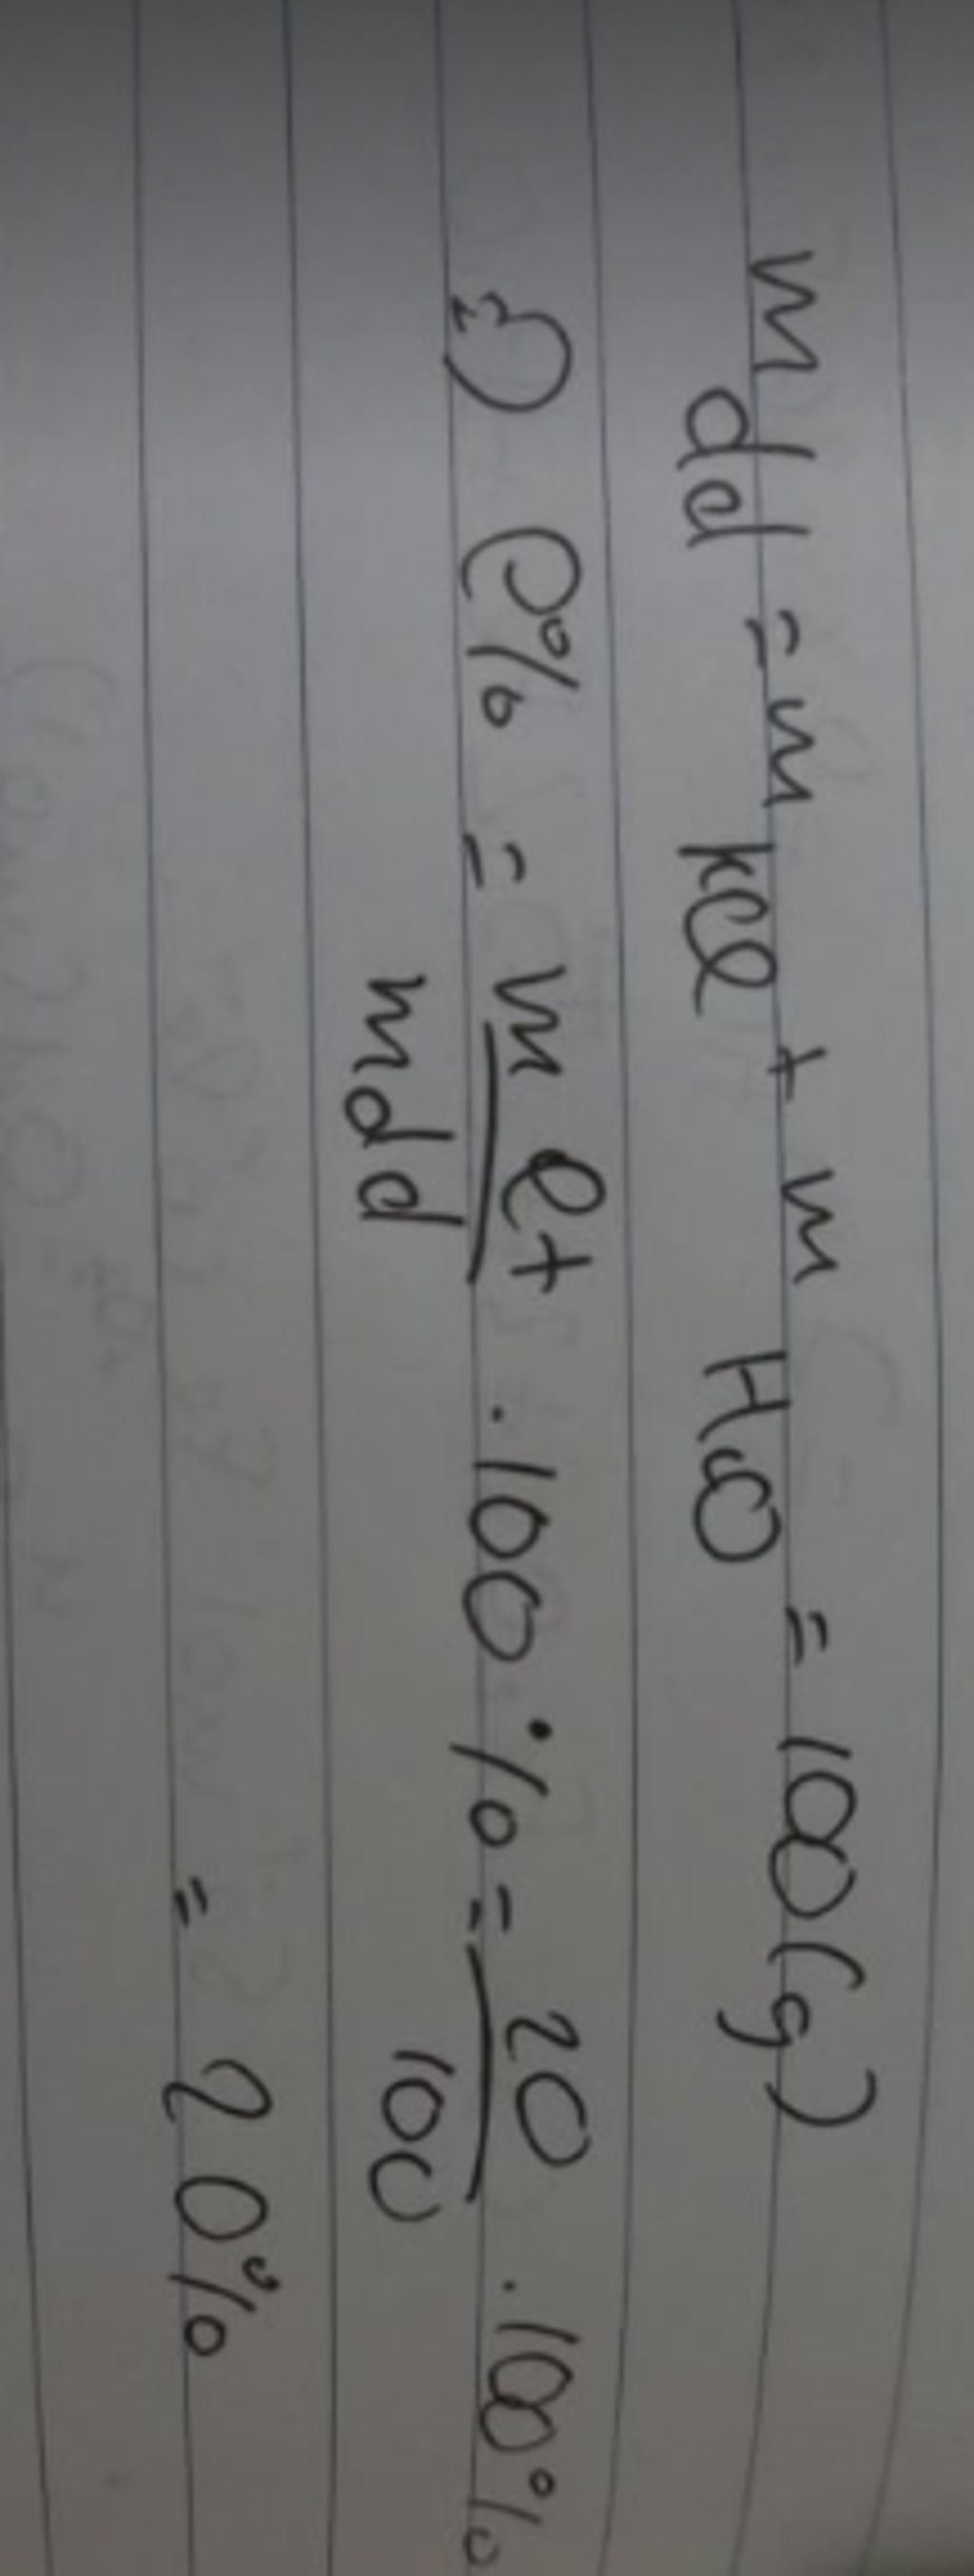 m dd = m kCl + m H2O = 100(g)
=> C% = m ct / m dd . 100 % = 20 / 100 . 100%
= 20%